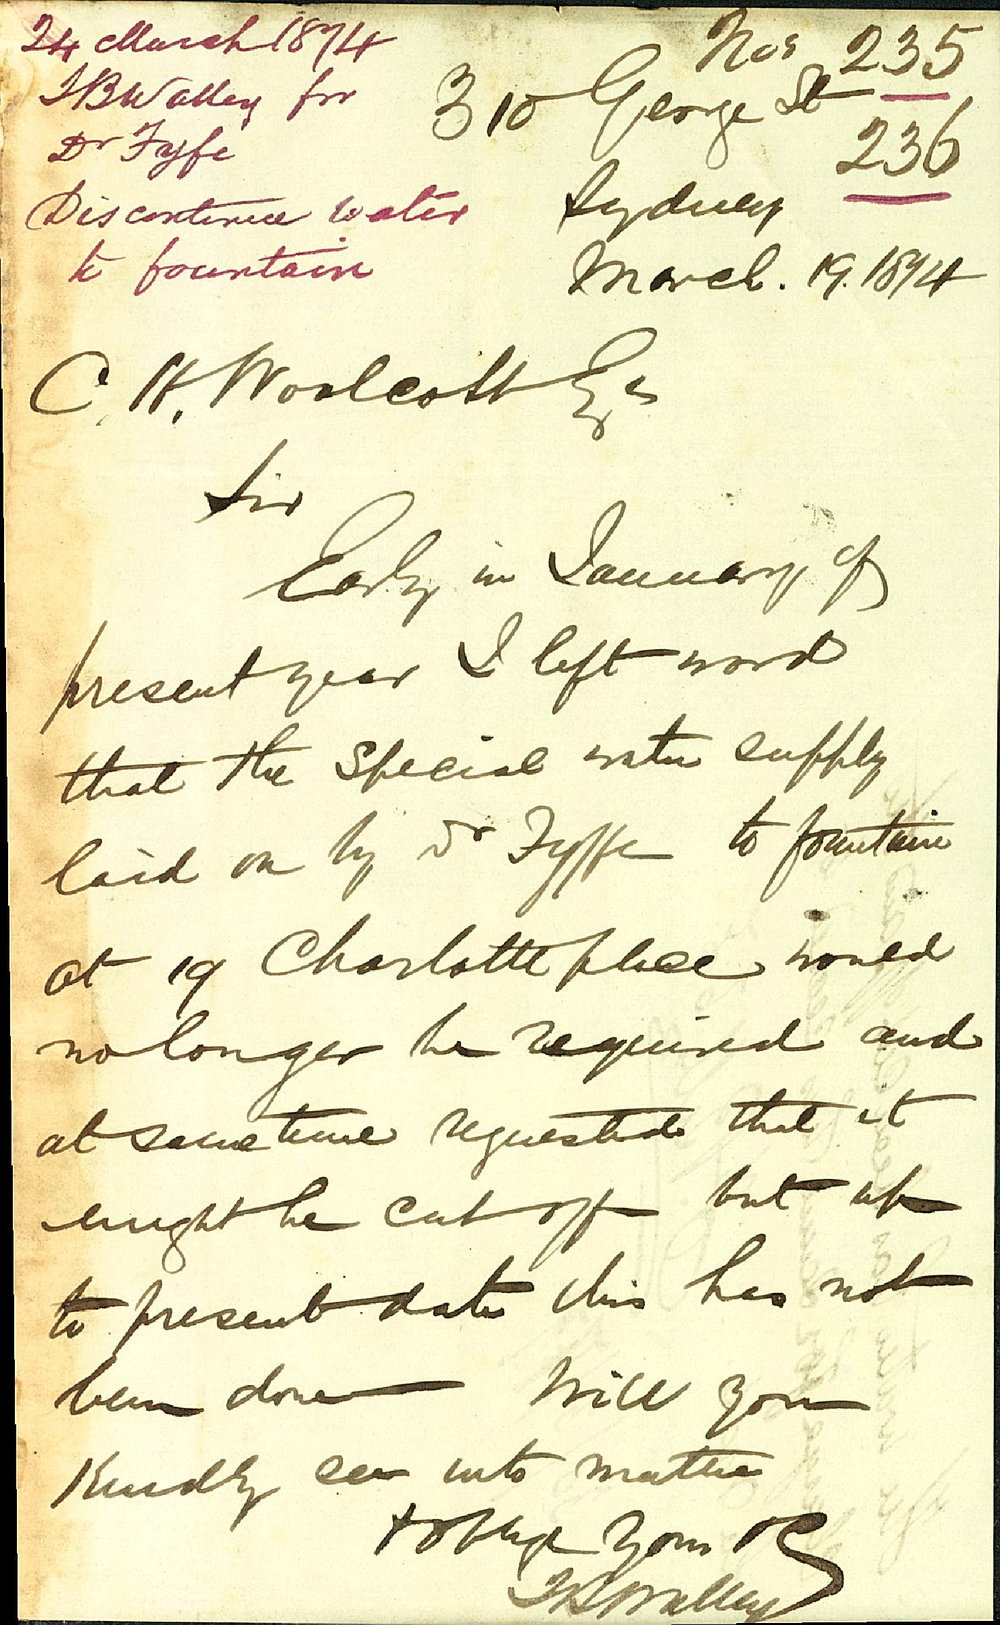 24 March 1874
J B Walley for
Dr Fyfe
Discontinue water
to fountain
Nos 235
236
310 George St
Sydney
March. 19. 1874
C. H. Woolcott Esq
Sir
Early in January, of
present year I left word
that the special water supply
laid on by Dr Fyffe to fountain
at 19 Charlotte place would
no longer be required and
at same time requested that it
might be cut off but up
to present date this has not
been done Will you
Kindly see into matter
& oblige Yours &c
J B Walley